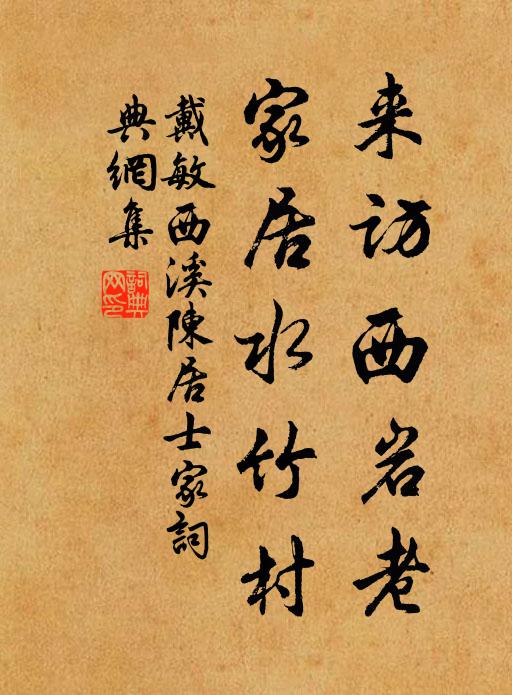 来訪西岩老
家居水竹村
戴敏西溪陳居士家詞
典網集
詞典網印